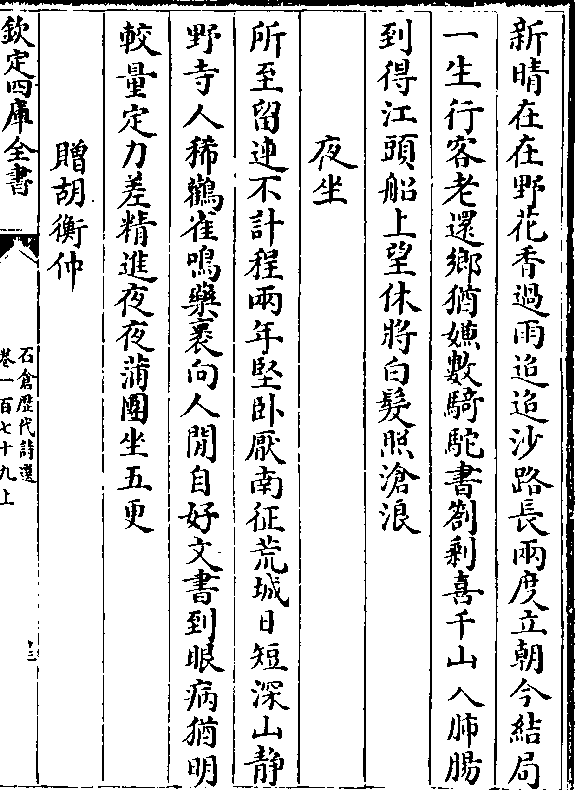 新晴在在野花香過雨迢迢沙路長兩度立朝今結局
一生行客老還鄉猶嫌數騎駝書劄剩喜千山入肺腸
到得江頭船上望休將白髮照滄浪
夜坐
所至留連不計程兩年堅卧厭南征荒城日短深山静
野寺人稀鸛雀鳴藥裹向人閒自好文書到眼病猶明
較量定力差精進夜夜蒲團坐五更
贈胡衡仲
欽定四庫全書
石倉歴代詩選
卷一百七十九上
十三